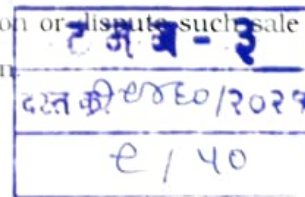 on or dispute such sale
ट न न - ३
दस्त क्र ९४६० / २०२१
९ / ५०